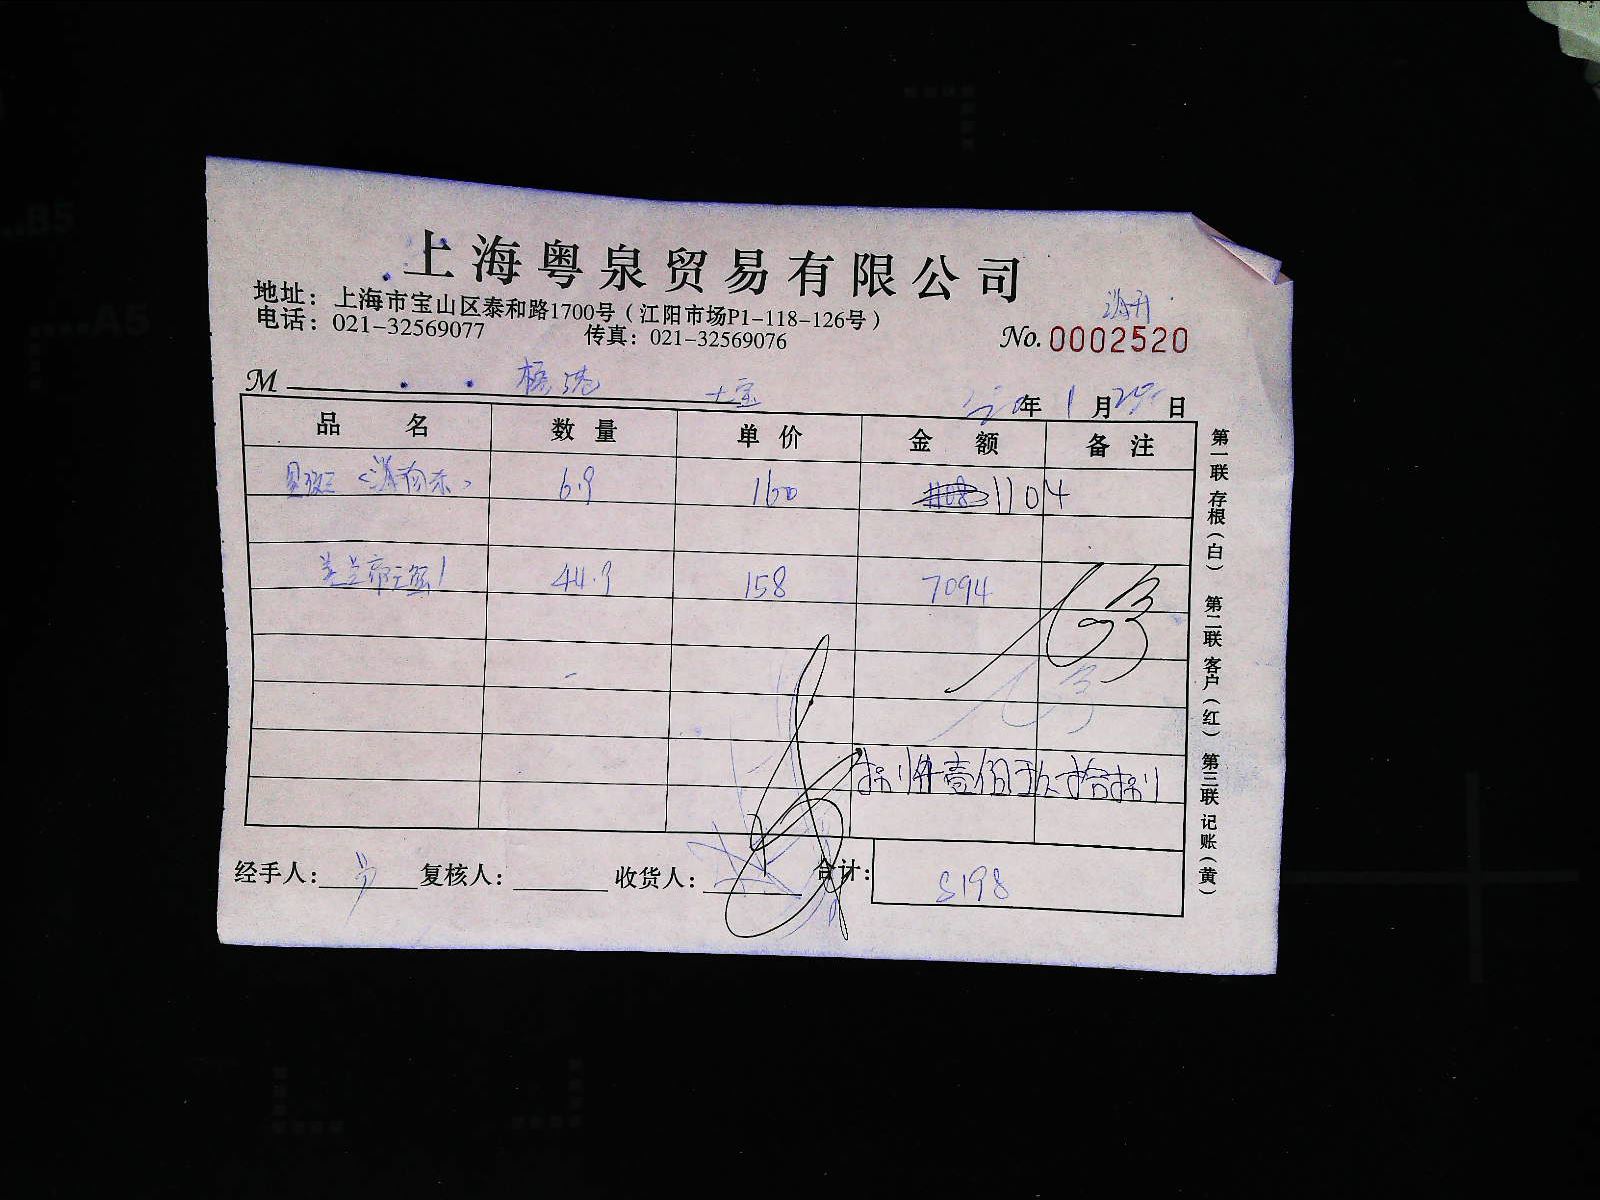 上海粤泉贸易有限公司
地址：上海市宝山区泰和路1700号（江阳市场P1-118-126号）
电话：021-32569077 传真：021-32569076
No. 0002520
M 年 1 月 日
品名 数量 单价 金额 备注
6.9 160 1104
44.9 158 7094
捌仟壹佰玖拾捌
经手人： 复核人： 收货人： 合计： 8198
第一联 存根（白） 第二联 客户（红） 第三联 记账（黄）